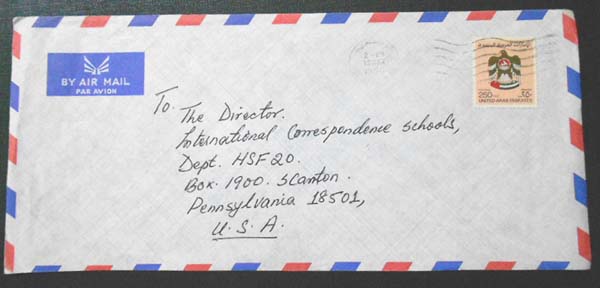 BY AIR MAIL
PAR AVION
الإمارات العربية المتحدة
250
٢٥٠
UNITED ARAB EMIRATES
To.
The Director.
International Correspondence Schools,
Dept. HSF 20.
Box. 1900. Scanton.
Pennsylvania 18501,
U. S. A.